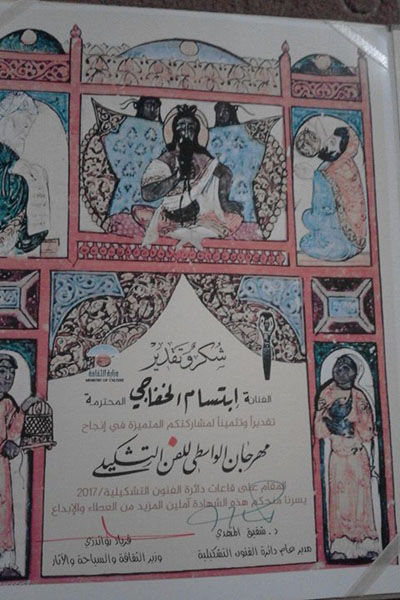 شكر وتقدير
وزارة الثقافة
MINISTRY OF CULTURE
الفنانة ابتسام الخفاجي المحترمة
تقديراً وتثميناً لمشاركتكم المتميزة في إنجاح
مهرجان الواسطي للفن التشكيلي
المقام على قاعات دائرة الفنون التشكيلية/2017
يسرنا منحكم هذه الشهادة آملين المزيد من العطاء والإبداع
د. شفيق المهدي
مدير عام دائرة الفنون التشكيلية
فرياد رواندزي
وزير الثقافة والسياحة والآثار